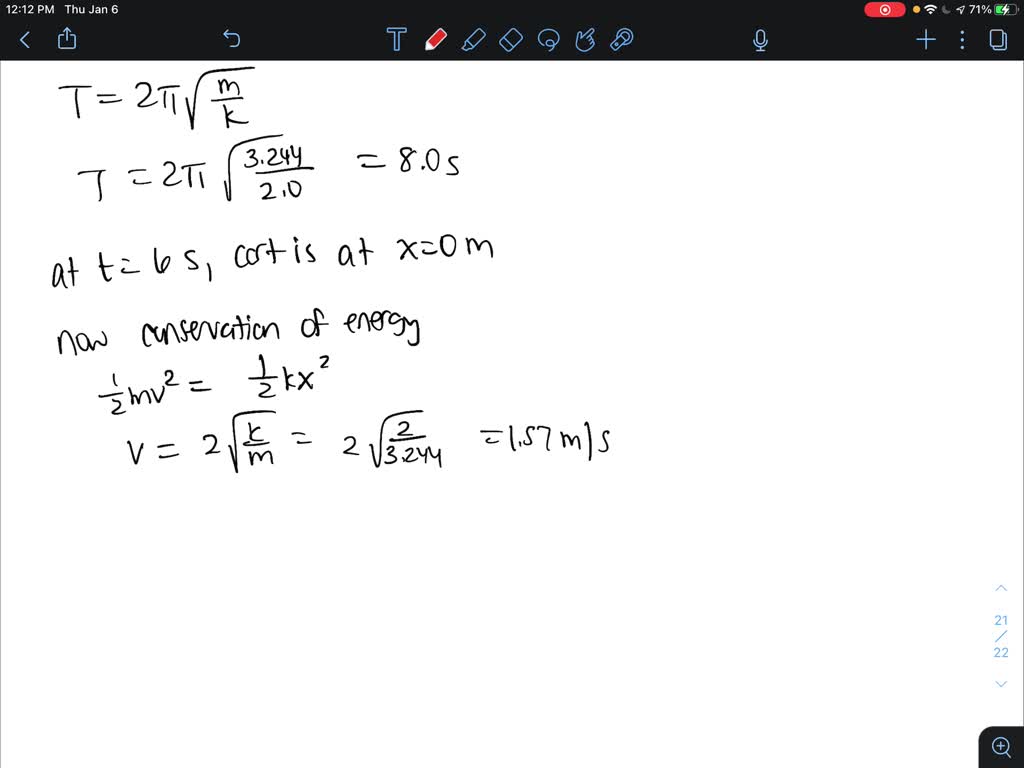 12:12 PM Thu Jan 6 71%
T = 2π√(m/k)
T = 2π √(3.244/2.0) = 8.0 s
at t = 6 s, cart is at x = 0 m
now conservation of energy
1/2 mv² = 1/2 kx²
v = 2√(k/m) = 2√(2/3.244) = 1.57 m/s
21
/
22